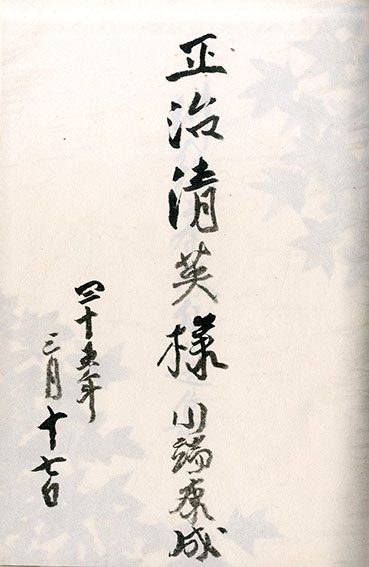 正治清英様 川端康成
四十五年
三月十七日